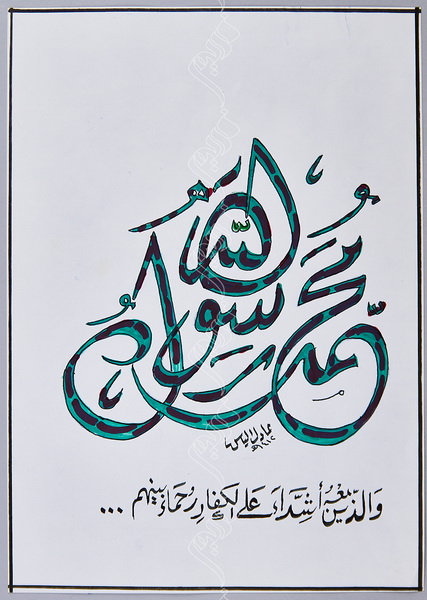 محمد رسول الله
والذين معه أشداء على الكفار رحماء بينهم ...